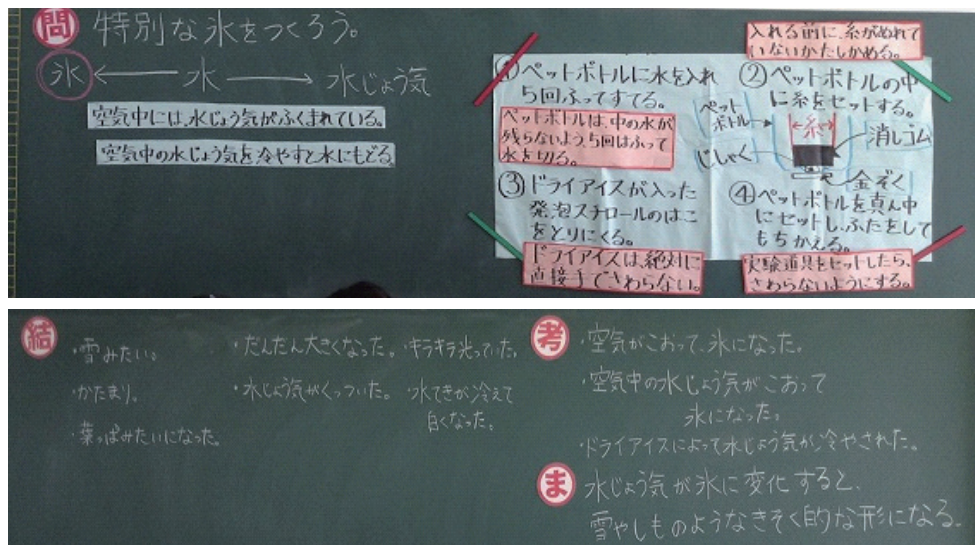 問 特別な氷をつくろう。
氷 ← 水 → 水じょう気
空気中には、水じょう気がふくまれている。
空気中の水じょう気を冷やすと水にもどる。
①ペットボトルに水を入れ
5回ふってすてる。
ペットボトルは、中の水が
残らないよう、5回はふって
水を切る。
入れる前に、糸がぬれて
いないかたしかめる。
②ペットボトルの中
に糸をセットする。
ペット
ボトル
糸
消しゴム
じしゃく
金ぞく
③ドライアイスが入った
発泡スチロールのはこ
をとりにくる。
ドライアイスは、絶対に
直接手でさわらない。
④ペットボトルを真ん中
にセットし、ふたをして
もちかえる。
実験道具をセットしたら、
さわらないようにする。
結
・雪みたい。
・かたまり。
・葉っぱみたいになった。
・だんだん大きくなった。
・水じょう気がくっついた。
・キラキラ光っていた。
・水てきが冷えて
白くなった。
考
・空気がこおって、氷になった。
・空気中の水じょう気がこおって
氷になった。
・ドライアイスによって水じょう気が冷やされた。
ま 水じょう気が氷に変化すると、
雪やしものようなきそく的な形になる。